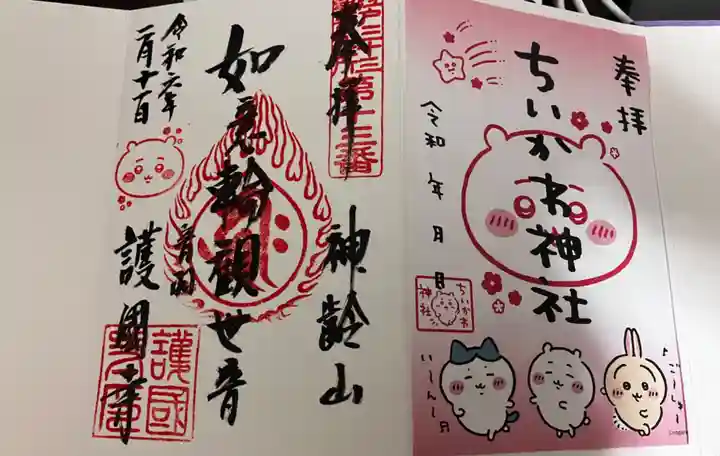 奉拝
ちいかわ神社
令和 年 月 日
ちいかわ
神社
い〜んし〜
♪ご〜しゅ〜
奉拝
第十三番
神齢山
如意輪観世音
音羽
令和六年
二月十一日
護国寺
護國